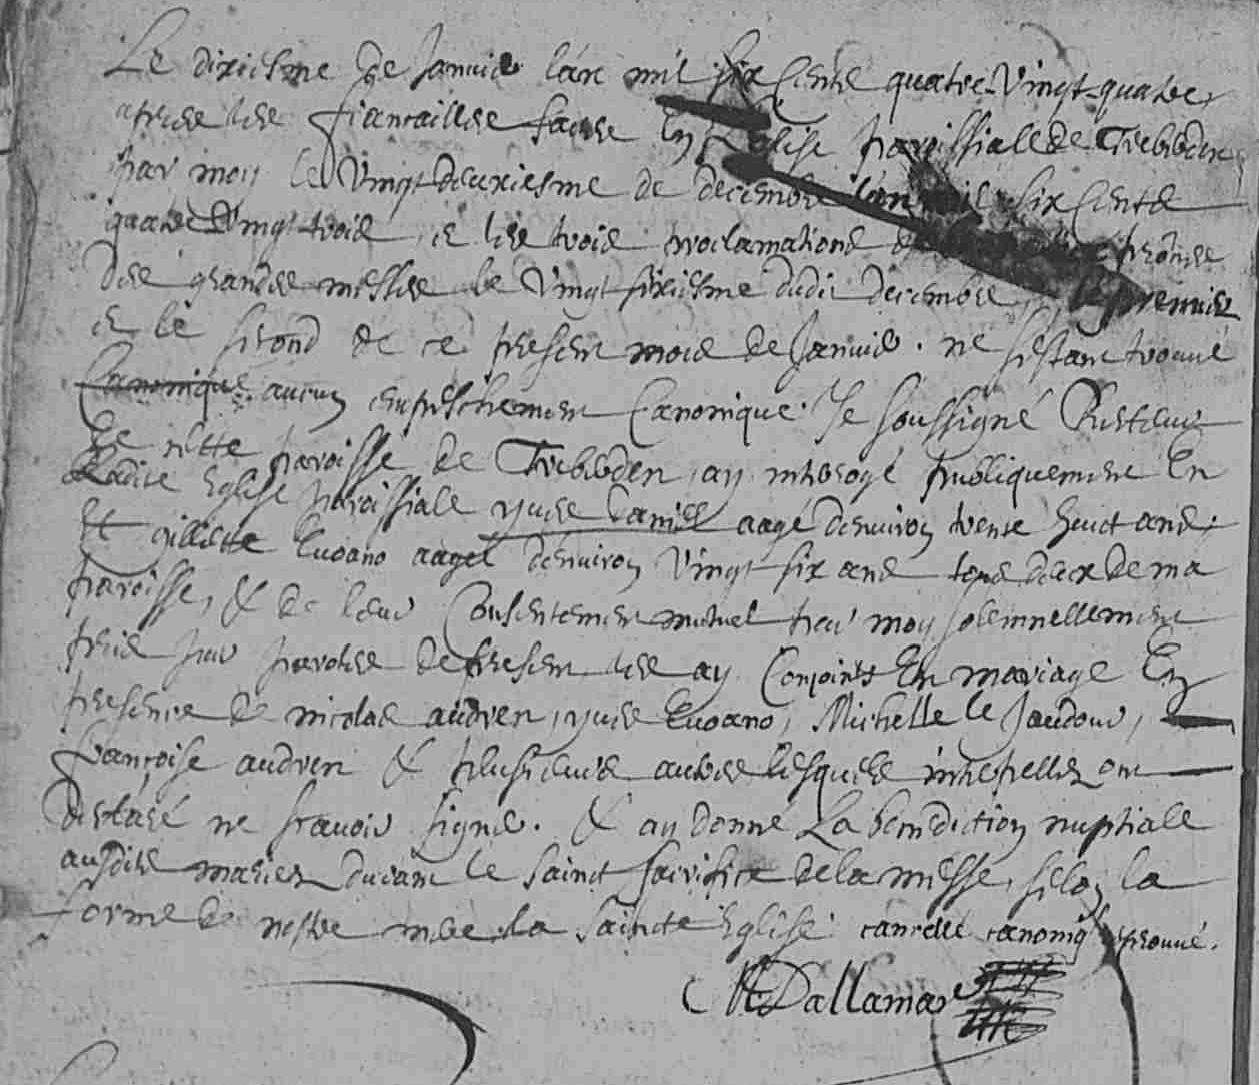 Le dixiesme de Janvier l'an mil six cents quatre-vingt-quatre
apres les fiançailles faites en l'eglise paroissialle de Trebeden
par moy le vingt deuxiesme de decembre l'an mil six cents
quatre vingt trois, et les trois proclamations prosnes
des grandes messes le vingt sixiesme dudit decembre, le premier
et le second de ce present mois de Janvier. ne s'estant trouvé
Canonique aucun empeschement Canonique. Je soussigné Recteur
de cette paroisse de Trebeden, ay interogé publiquement En
Ladite Eglise paroissiale yves daniel aagé d'environ trente huict ans.
Et gillette Evoano aagée d'environ vingt six ans tous deux de ma
paroisse, & de leur Consentement mutuel par moy solemnellement
pris par paroles de present les ay Conjoints En mariage En
presence de nicolas audren, yves Evoano, Michelle le Jaudour,
françoise audren & plusieurs autres lesquels interpellez ont
declaré ne sçavoir signer. & ay donné La benediction nuptiale
ausdits mariez durant le sainct sacrifice de la messe, selon la
forme de nostre mere la saincte Eglise. cancellé canoniq approuvé.
Dallamar